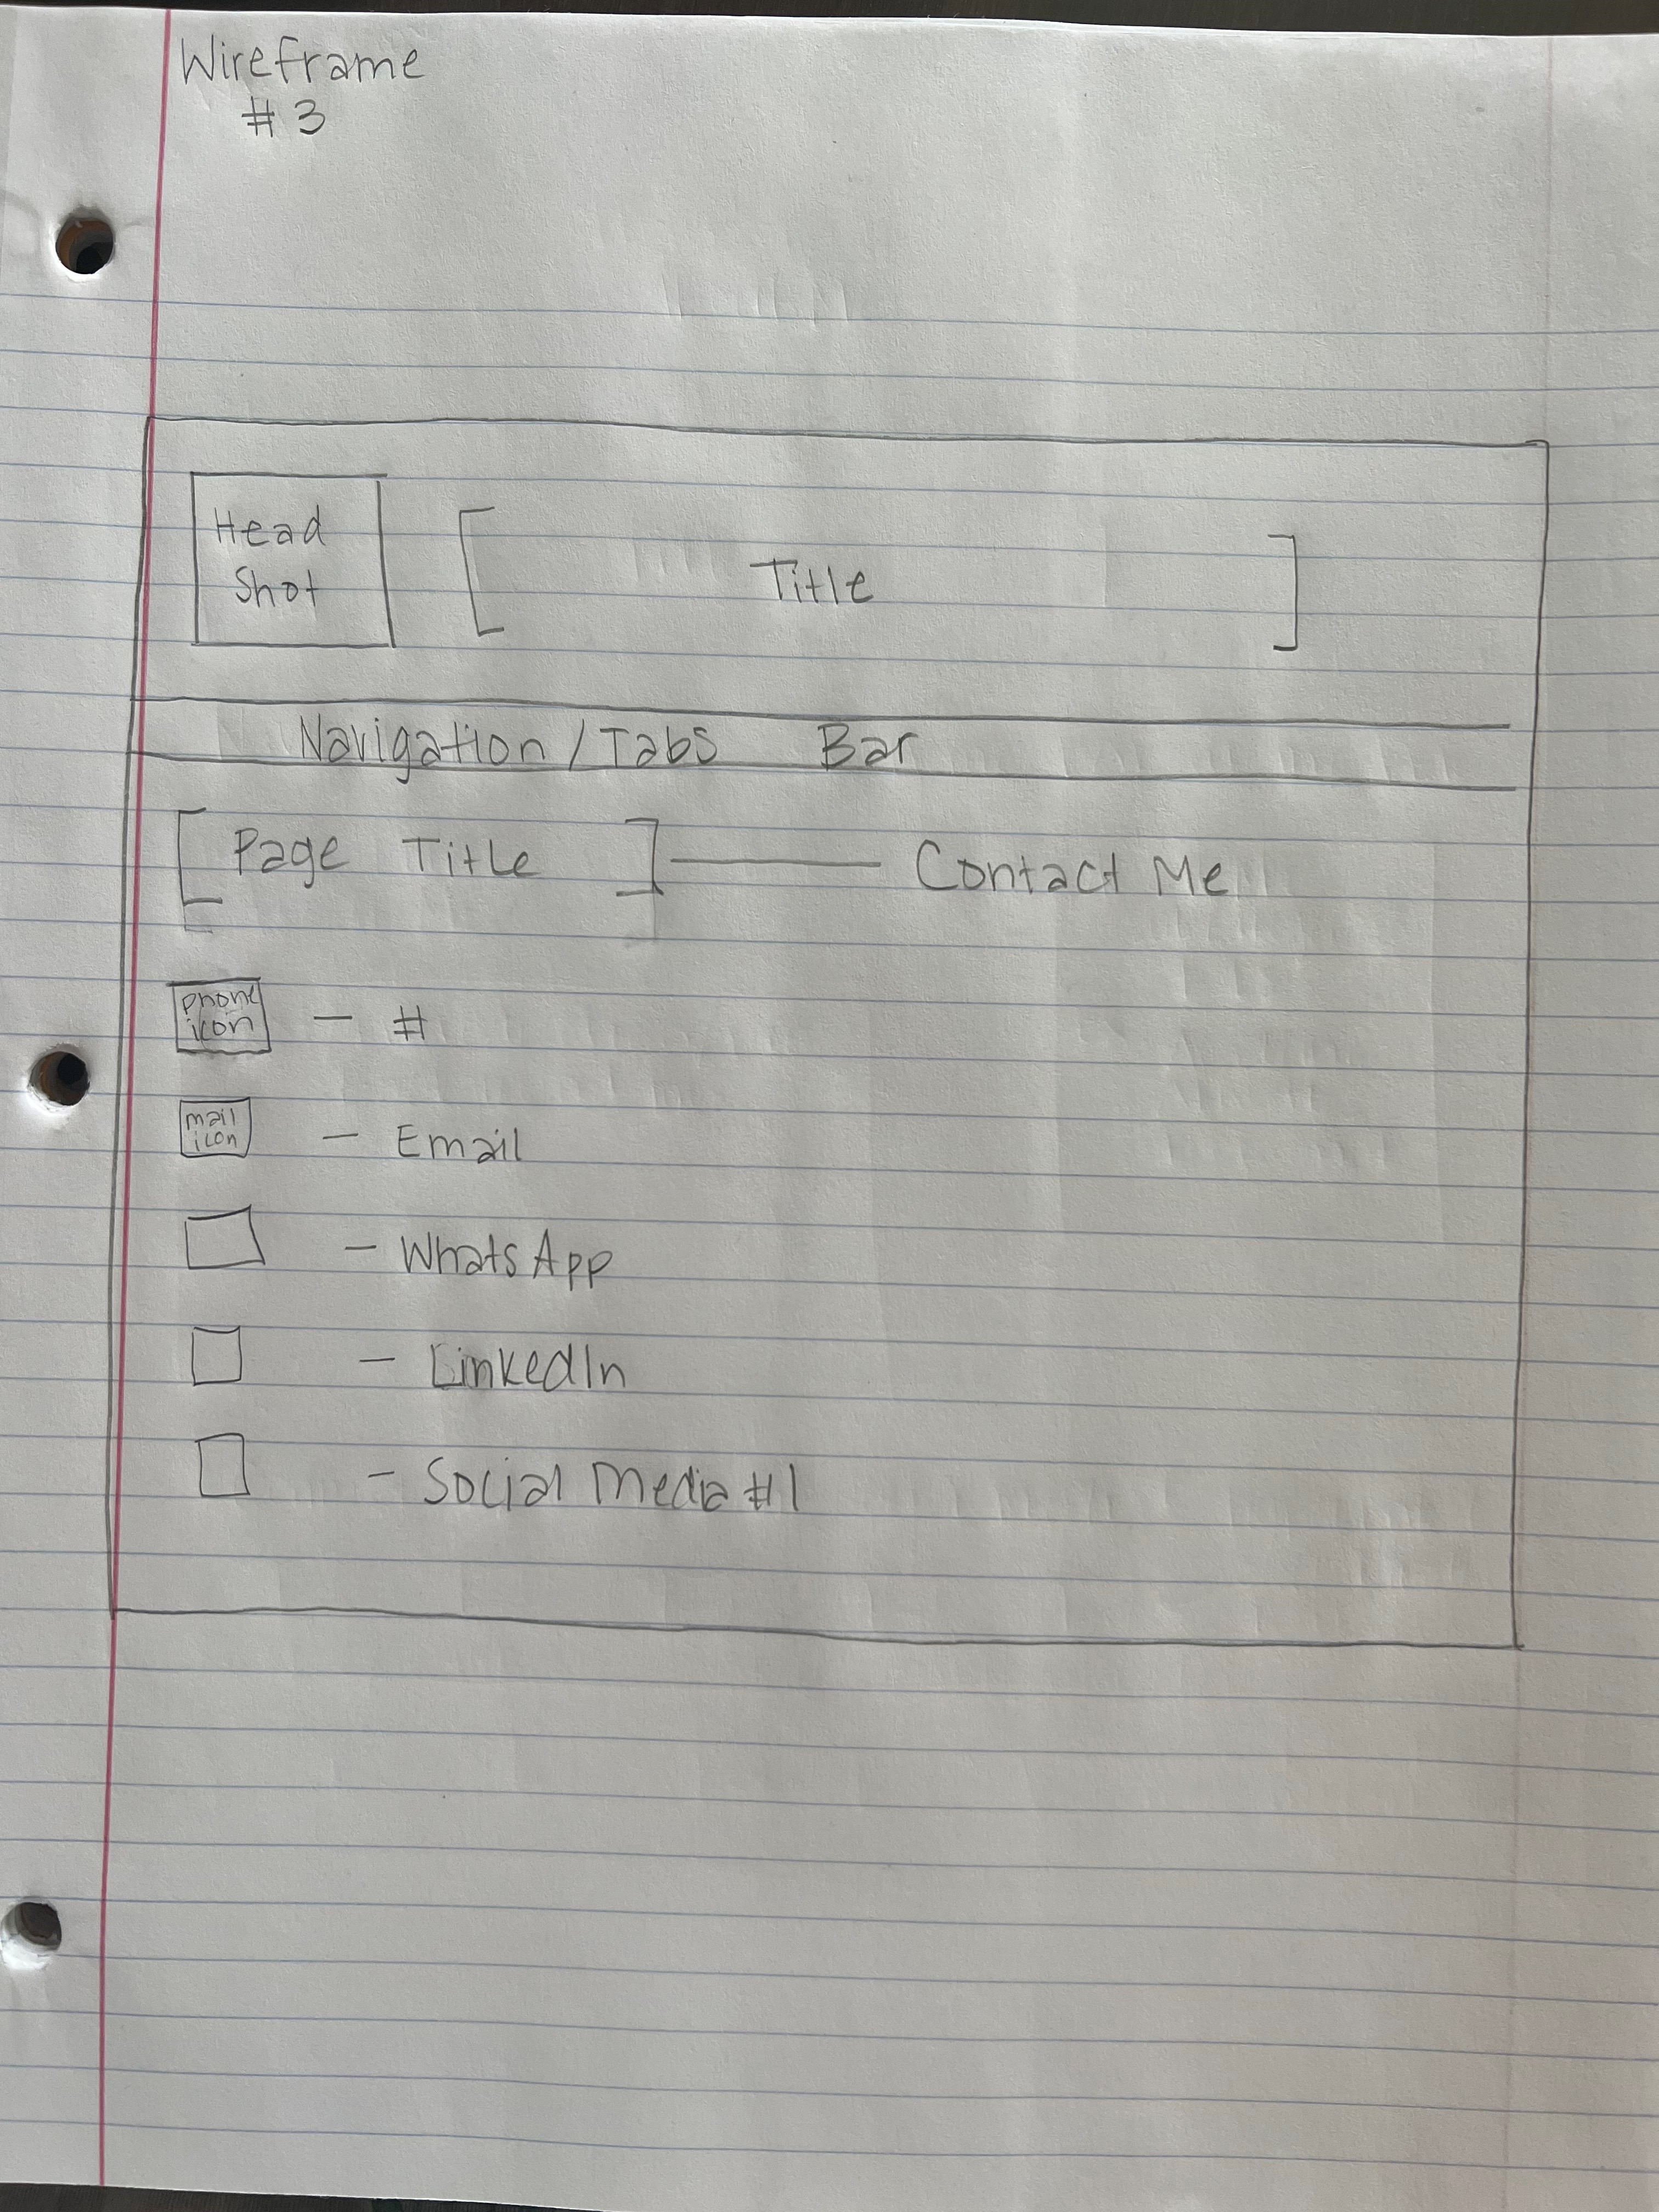 Wireframe
# 3
Head
Shot
[ Title ]
Navigation / Tabs Bar
[ Page Title ] — Contact Me
phone
icon
— #
mail
icon
— Email
— WhatsApp
— LinkedIn
— Social Media #1